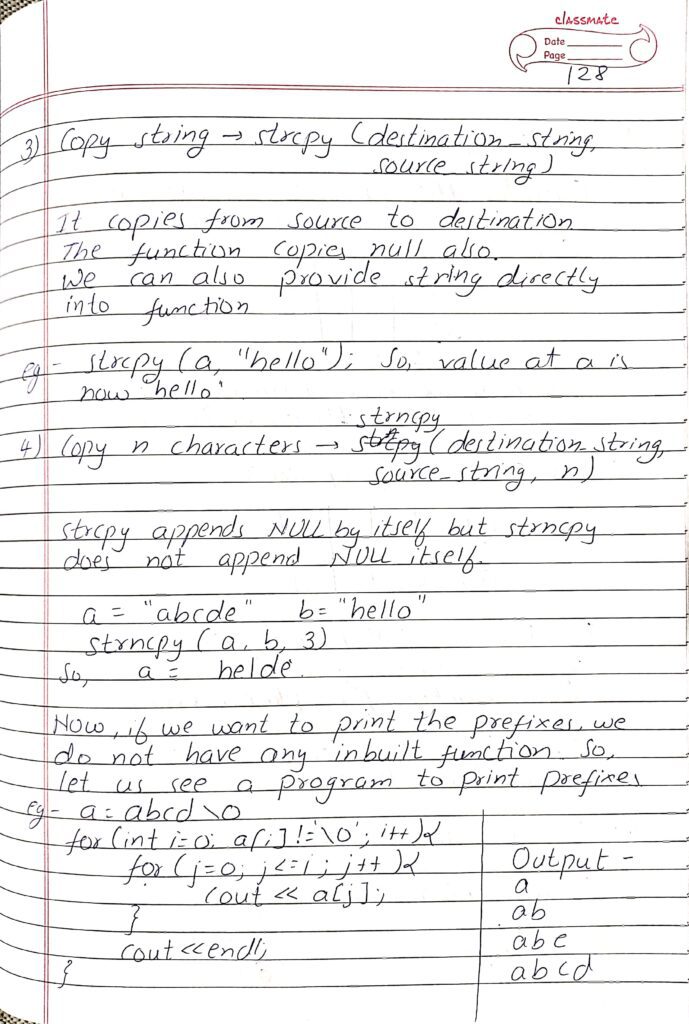 classmate
Date
Page
128
3) Copy string → strcpy (destination_string,
source string)
It copies from source to destination
The function copies null also.
We can also provide string directly
into function
eg - strcpy (a, "hello"); So, value at a is
now "hello'
strncpy
4) Copy n characters → (destination_string,
source_string, n)
strcpy appends NULL by itself but strncpy
does not append NULL itself.
a = "abcde" b= "hello"
strncpy (a, b, 3)
So, a = helde.
Now, if we want to print the prefixes, we
do not have any inbuilt function. So,
let us see a program to print prefixes
eg - a = abcd \0
for (int i=0; a[i] != '\0'; i++){
for (j=0; j<=i; j++){
cout << a[j];
}
cout <<endl;
}
Output -
a
ab
abc
abcd